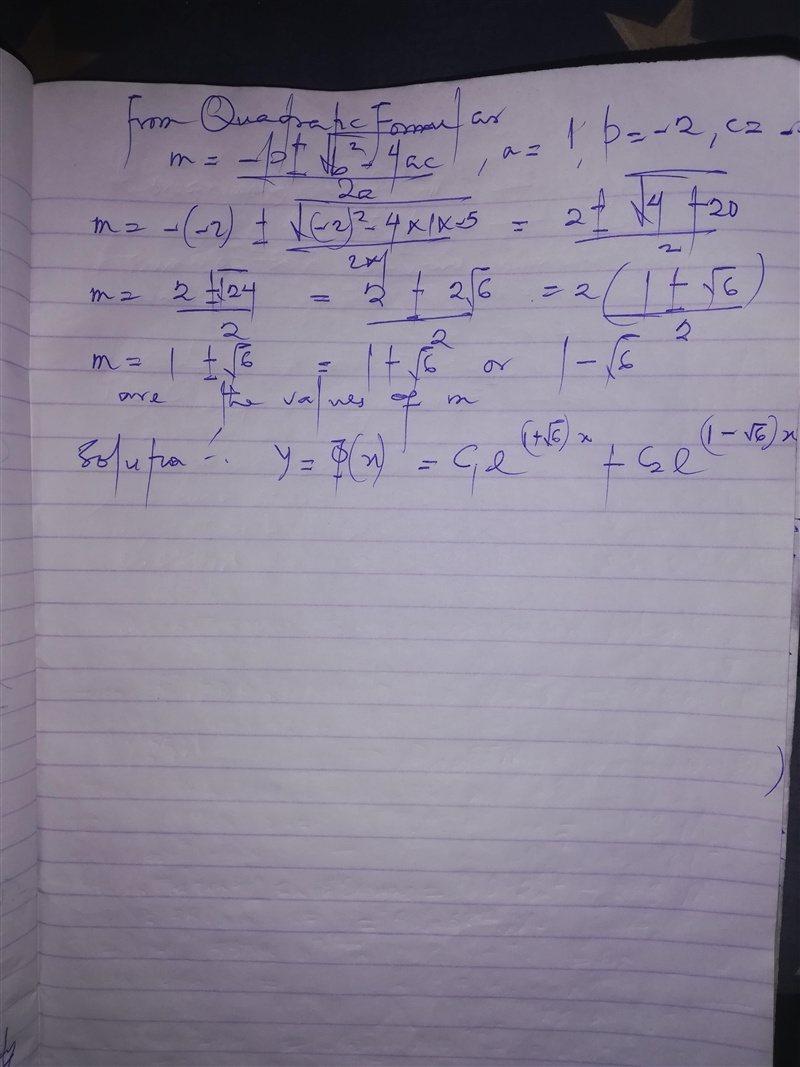 From Quadratic Formular
m = -b ± √b² - 4ac / 2a , a = 1, b = -2, c = -
m = -(-2) ± √(-2)² - 4x1x-5 / 2x1 = 2 ± √4 + 20 / 2
m = 2 ± √24 / 2 = 2 ± 2√6 / 2 = 2(1 ± √6) / 2
m = 1 ± √6 = 1 + √6 or 1 - √6
are the values of m
∴ y = Φ(x) = C₁e^(1+√6)x + C₂e^(1-√6)x